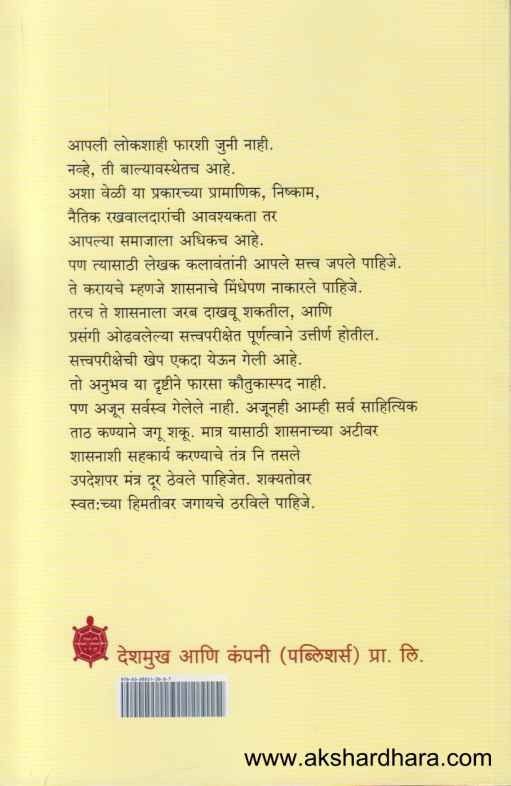 आपली लोकशाही फारशी जुनी नाही.
नव्हे, ती बाल्यावस्थेतच आहे.
अशा वेळी या प्रकारच्या प्रामाणिक, निष्काम,
नैतिक रखवालदारांची आवश्यकता तर
आपल्या समाजाला अधिकच आहे.
पण त्यासाठी लेखक कलावंतांनी आपले सत्त्व जपले पाहिजे.
ते करायचे म्हणजे शासनाचे मिंधेपण नाकारले पाहिजे.
तरच ते शासनाला जरब दाखवू शकतील, आणि
प्रसंगी ओढवलेल्या सत्त्वपरीक्षेत पूर्णत्वाने उत्तीर्ण होतील.
सत्त्वपरीक्षेची खेप एकदा येऊन गेली आहे.
तो अनुभव या दृष्टीने फारसा कौतुकास्पद नाही.
पण अजून सर्वस्व गेलेले नाही. अजूनही आम्ही सर्व साहित्यिक
ताठ कण्याने जगू शकू. मात्र यासाठी शासनाच्या अटीवर
शासनाशी सहकार्य करण्याचे तंत्र नि तसले
उपदेशपर मंत्र दूर ठेवले पाहिजेत. शक्यतोवर
स्वत:च्या हिमतीवर जगायचे ठरविले पाहिजे.
देशमुख आणि कंपनी (पब्लिशर्स) प्रा. लि.
www.akshardhara.com